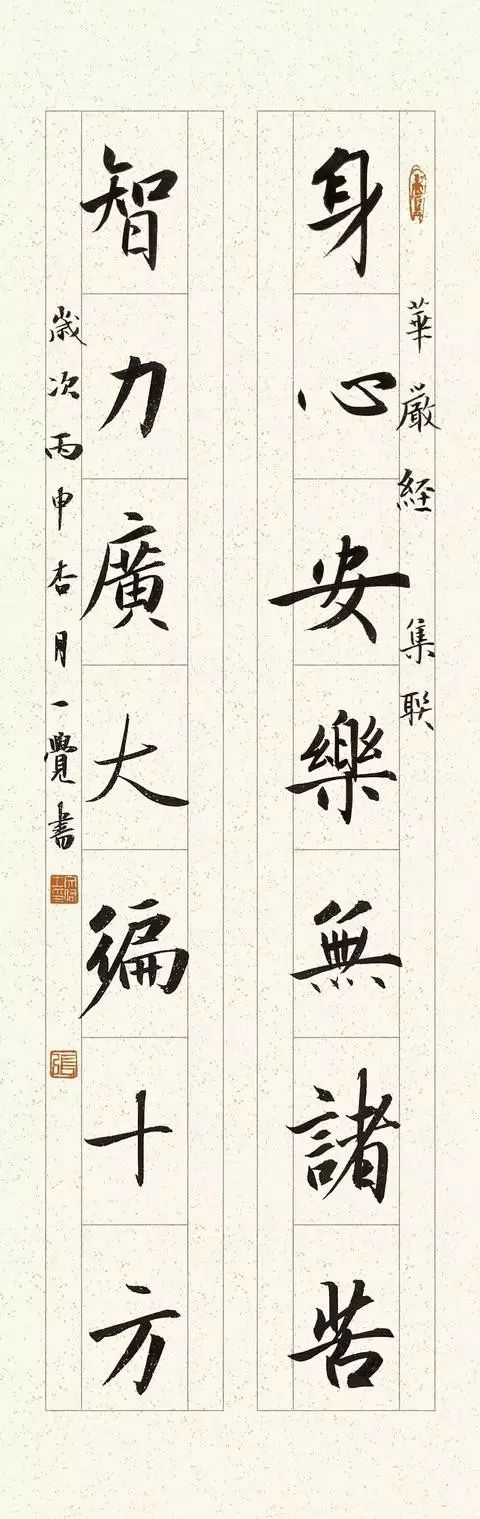 華嚴経 集联
身心安樂無諸苦
智力廣大徧十方
歲次丙申杏月一覺書
張